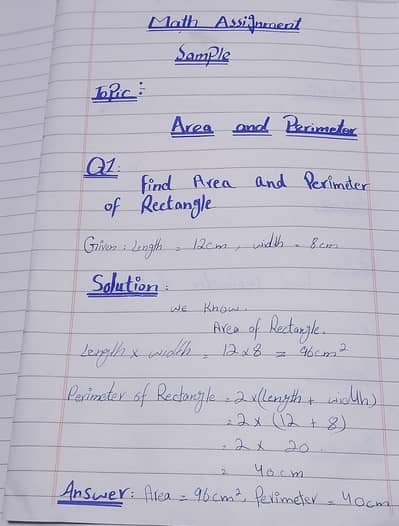 Math Assignment
Sample
Topic :
Area and Perimeter
Q1:
Find Area and Perimeter
of Rectangle
Given : Length = 12cm , width = 8cm
Solution :
we know.
Area of Rectangle.
Length x width = 12x8 = 96cm²
Perimeter of Rectangle = 2x(length + width)
= 2x (12 + 8)
= 2x 20.
= 40cm
Answer: Area = 96cm², Perimeter = 40cm